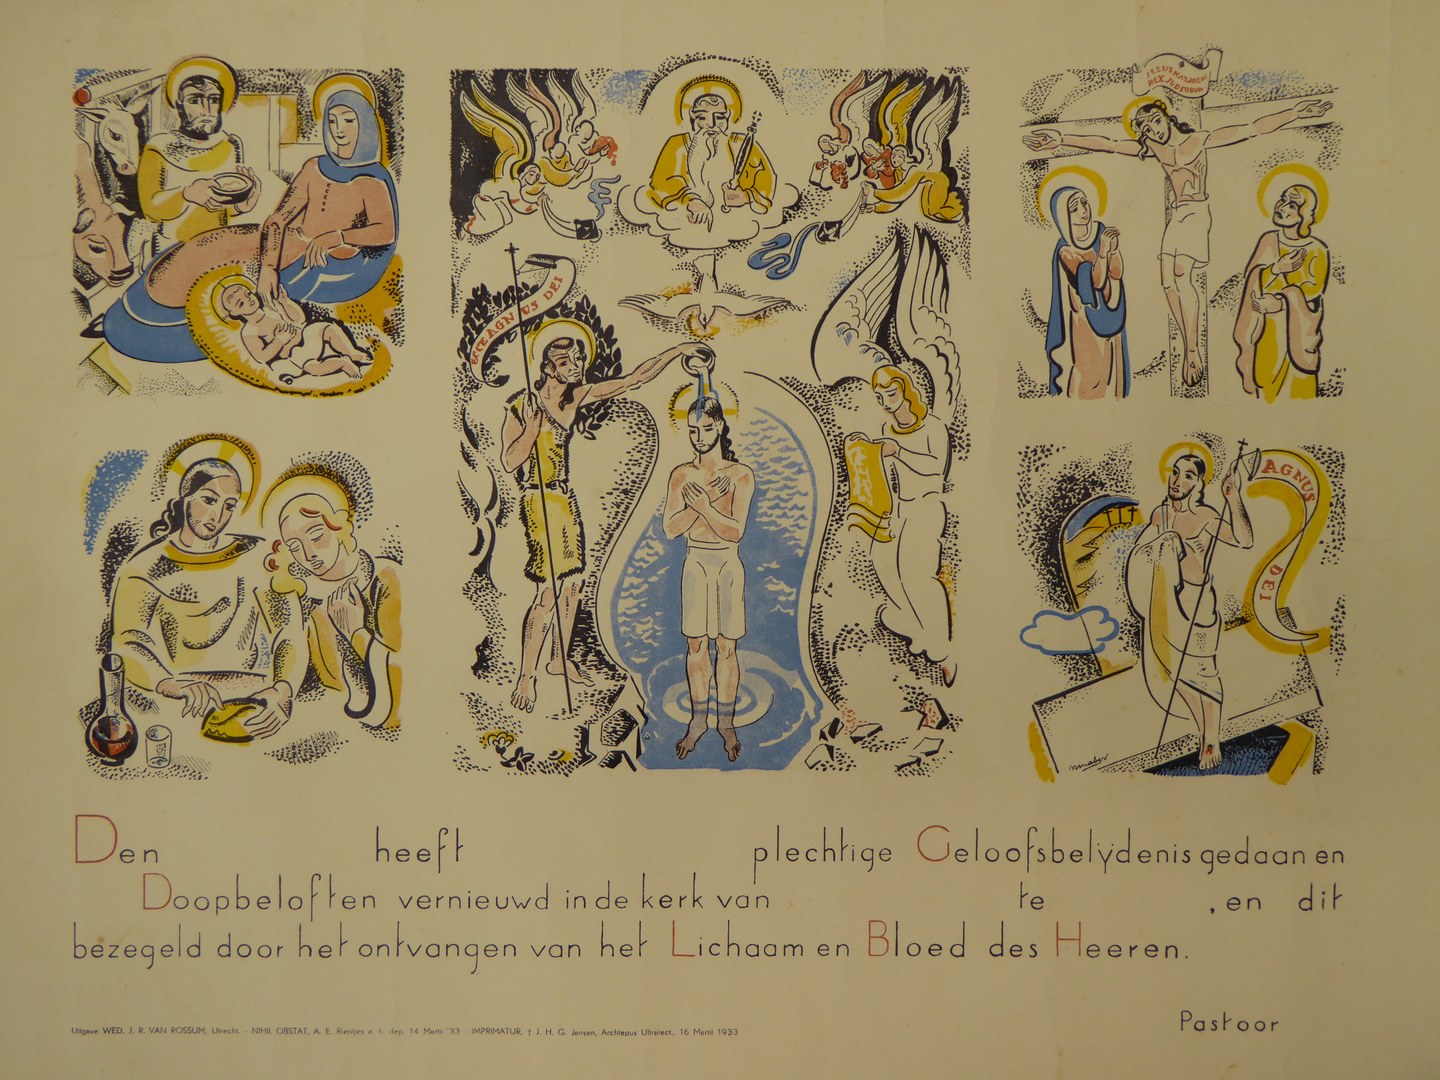 JEZUS NAZARENUS
REX JUDEORUM
ECCE AGNUS DEI
AGNUS DEI
Den heeft plechtige Geloofsbelÿdenis gedaan en
Doopbeloften vernieuwd in de kerk van te , en dit
bezegeld door het ontvangen van het Lichaam en Bloed des Heeren.
Pastoor
Uitgave WED. J. R. VAN ROSSUM, Utrecht. - NIHIL OBSTAT, A. E. Rientjes a. h. dep. 14 Martii '33 - IMPRIMATUR, † J. H. G. Jansen, Archiepus Ultraiect., 16 Martii 1933